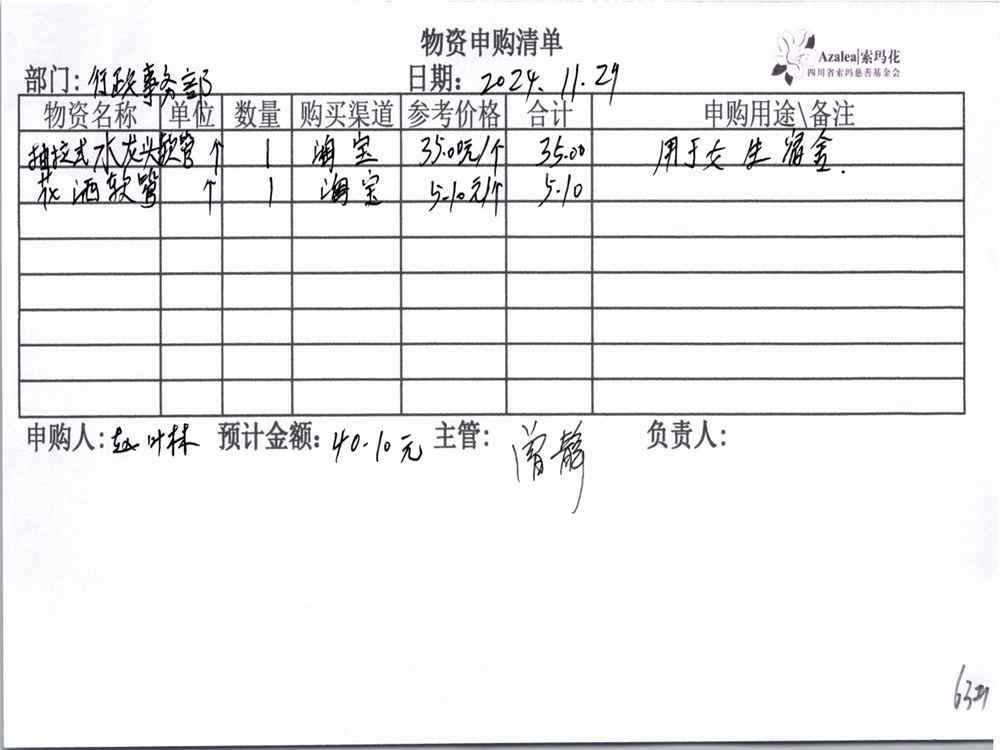 物资申购清单
Azalea|索玛花
四川省索玛慈善基金会
部门：行政事务部 日期：2024.11.29
物资名称 单位 数量 购买渠道 参考价格 合计 申购用途\备注
抽拉式水龙头软管 个 1 淘宝 35.00元/个 35.00 用于女生宿舍.
花洒软管 个 1 淘宝 5.10元/个 5.10
申购人：赵叶林 预计金额：40.10元 主管：曾静 负责人：